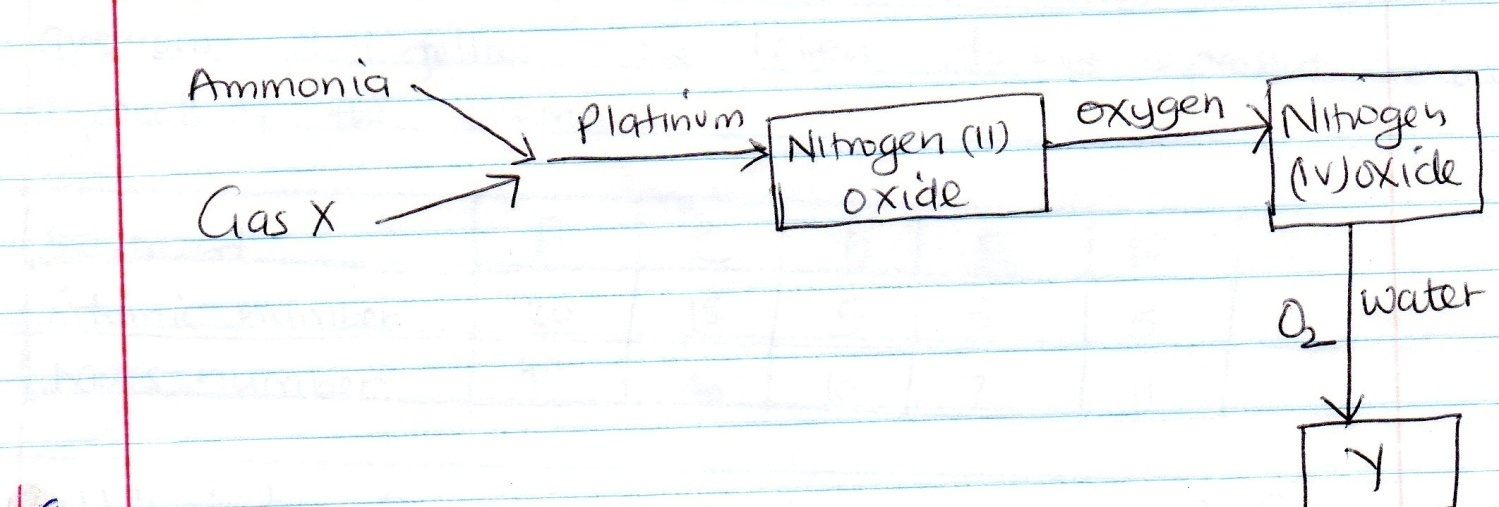 Ammonia
Platinum
Nitrogen (II)
oxide
oxygen
Nitrogen
(IV) oxide
Gas X
O2
water
Y